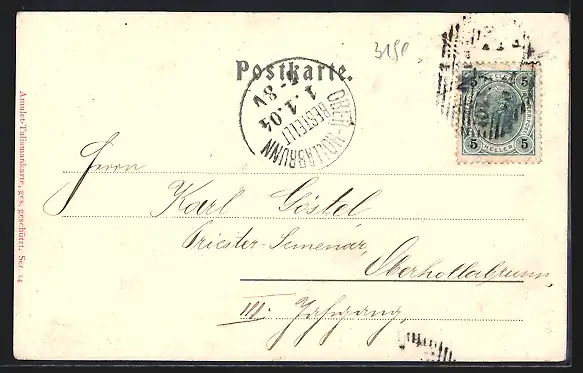 3150
Postkarte.
OBER-HOLLABRUNN
BESTELLT
1.1.04
8-V
5 5
HELLER
Herrn
Karl Göstel
Priester-Semenar,
Oberhollabrunn,
III. Jahrgang,
Amulet-Talismankarte, ges. geschützt. Ser. 14